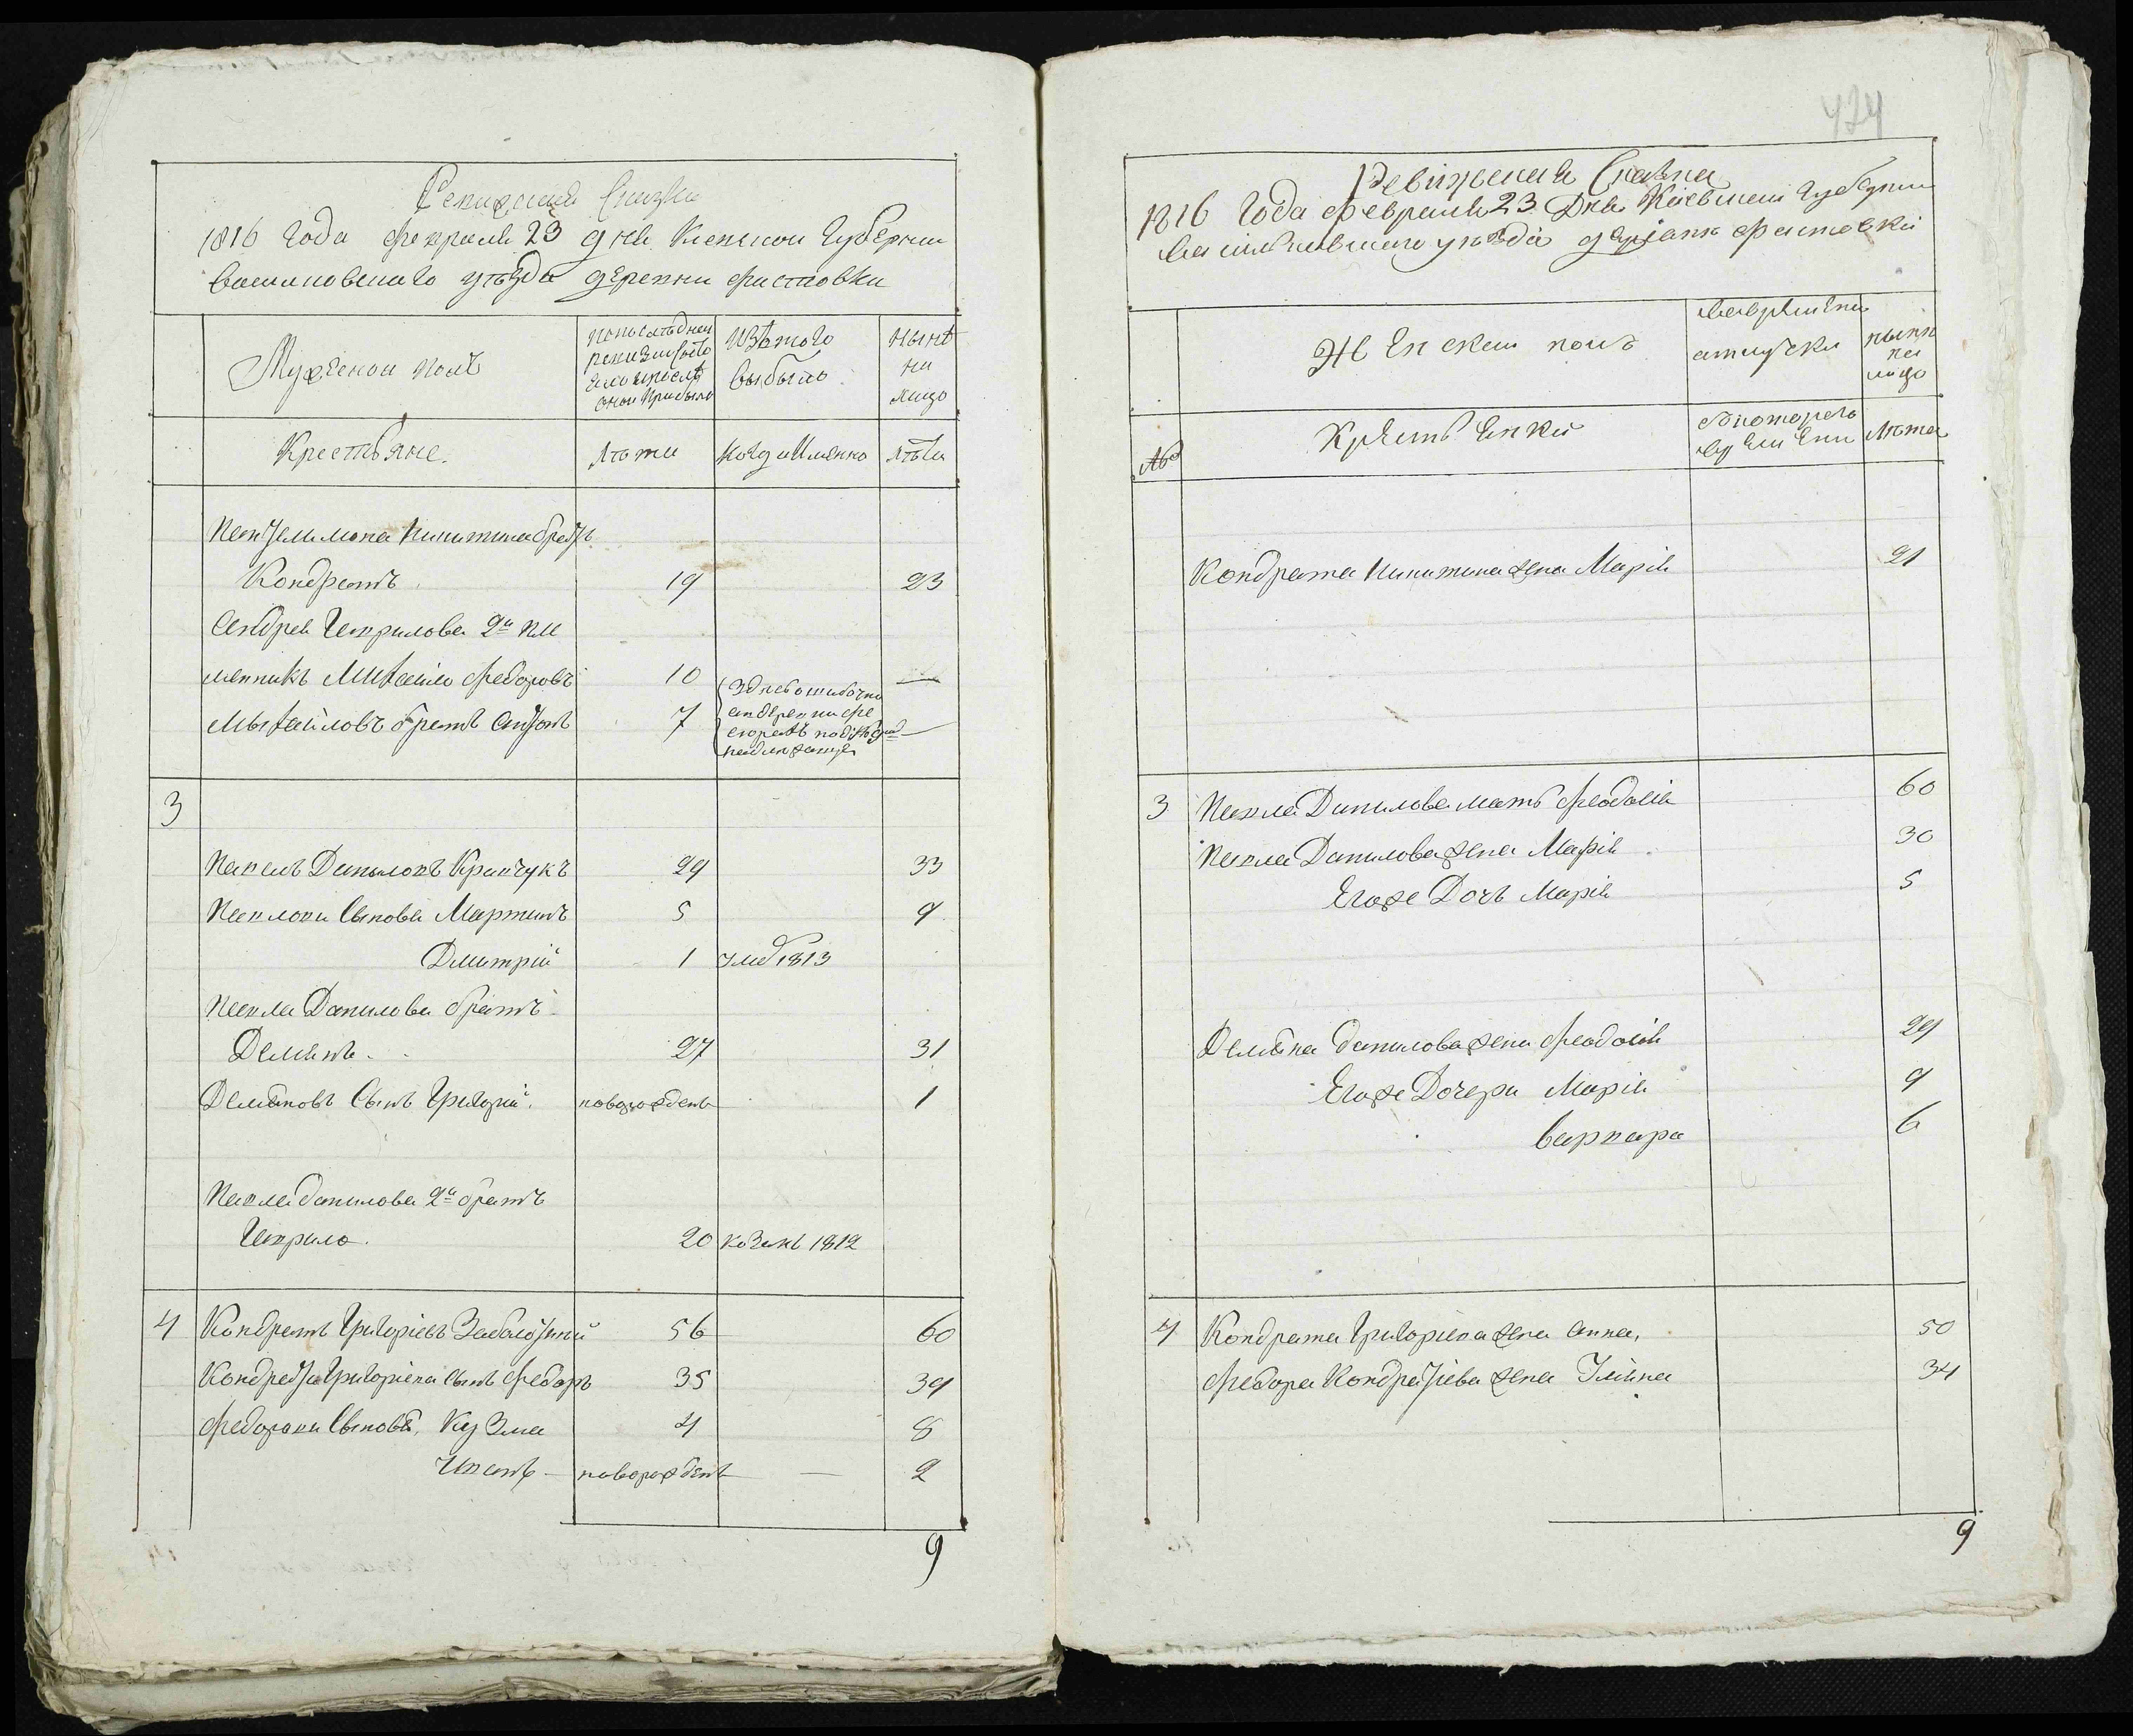 Ревизская Сказка
1816 года февраля 23 дня Киевской Губернии
Васильковского уѣзда деревни Фастовки
Мужеской полъ
По последней ревизии состояло и после оной прибыло
Изъ того выбыло
Нынѣ на лицо
Крестьяне.
Лѣта
Когда Именно
Лѣта
Никитина братъ
Кондратъ 19 23
Андрея Гаврилова 2й пле
менникъ Михайло Федоровъ 10 —
Михайловъ братъ Антонъ 7 —
3
Павелъ Даниловъ Кравчукъ 29 33
Павловы Сыновья Мартинъ 5 9
Дмитрій 1 умер 1813
Павла Данилова братъ
Демянъ 27 31
Демяновъ Сынъ Григорій новорожденъ 1
Павла Данилова 2й братъ
Гаврило. 20 козакъ 1812
4 Кондратъ Григоріевъ Заболотный 56 60
Кондрата Григоріева сынъ Федоръ 35 39
Федоровы Сыновья, Кузма 4 8
Игнатъ — новорожденъ — 2
9
424
Ревижская Сказка
1816 Года февраля 23 Дня Кіевской Губернии
Васильковского уѣзда деревни Фастовки
Женской полъ
Во временной отлучки
нынѣ на лицо
№
Крестьянки
Съ которого времени
Лѣта
Кондрата Никитина жена Марія 21
3 Павла Данилова мать Феодосія 60
Павла Данилова жена Марія 30
Егоже Дочь Марія 5
Демяна Данилова жена Феодосія 29
Егоже Дочери Марія 9
Варвара 6
4 Кондрата Григоріева жена Анна, 50
Федора Кондратіева жена Уляна 34
9